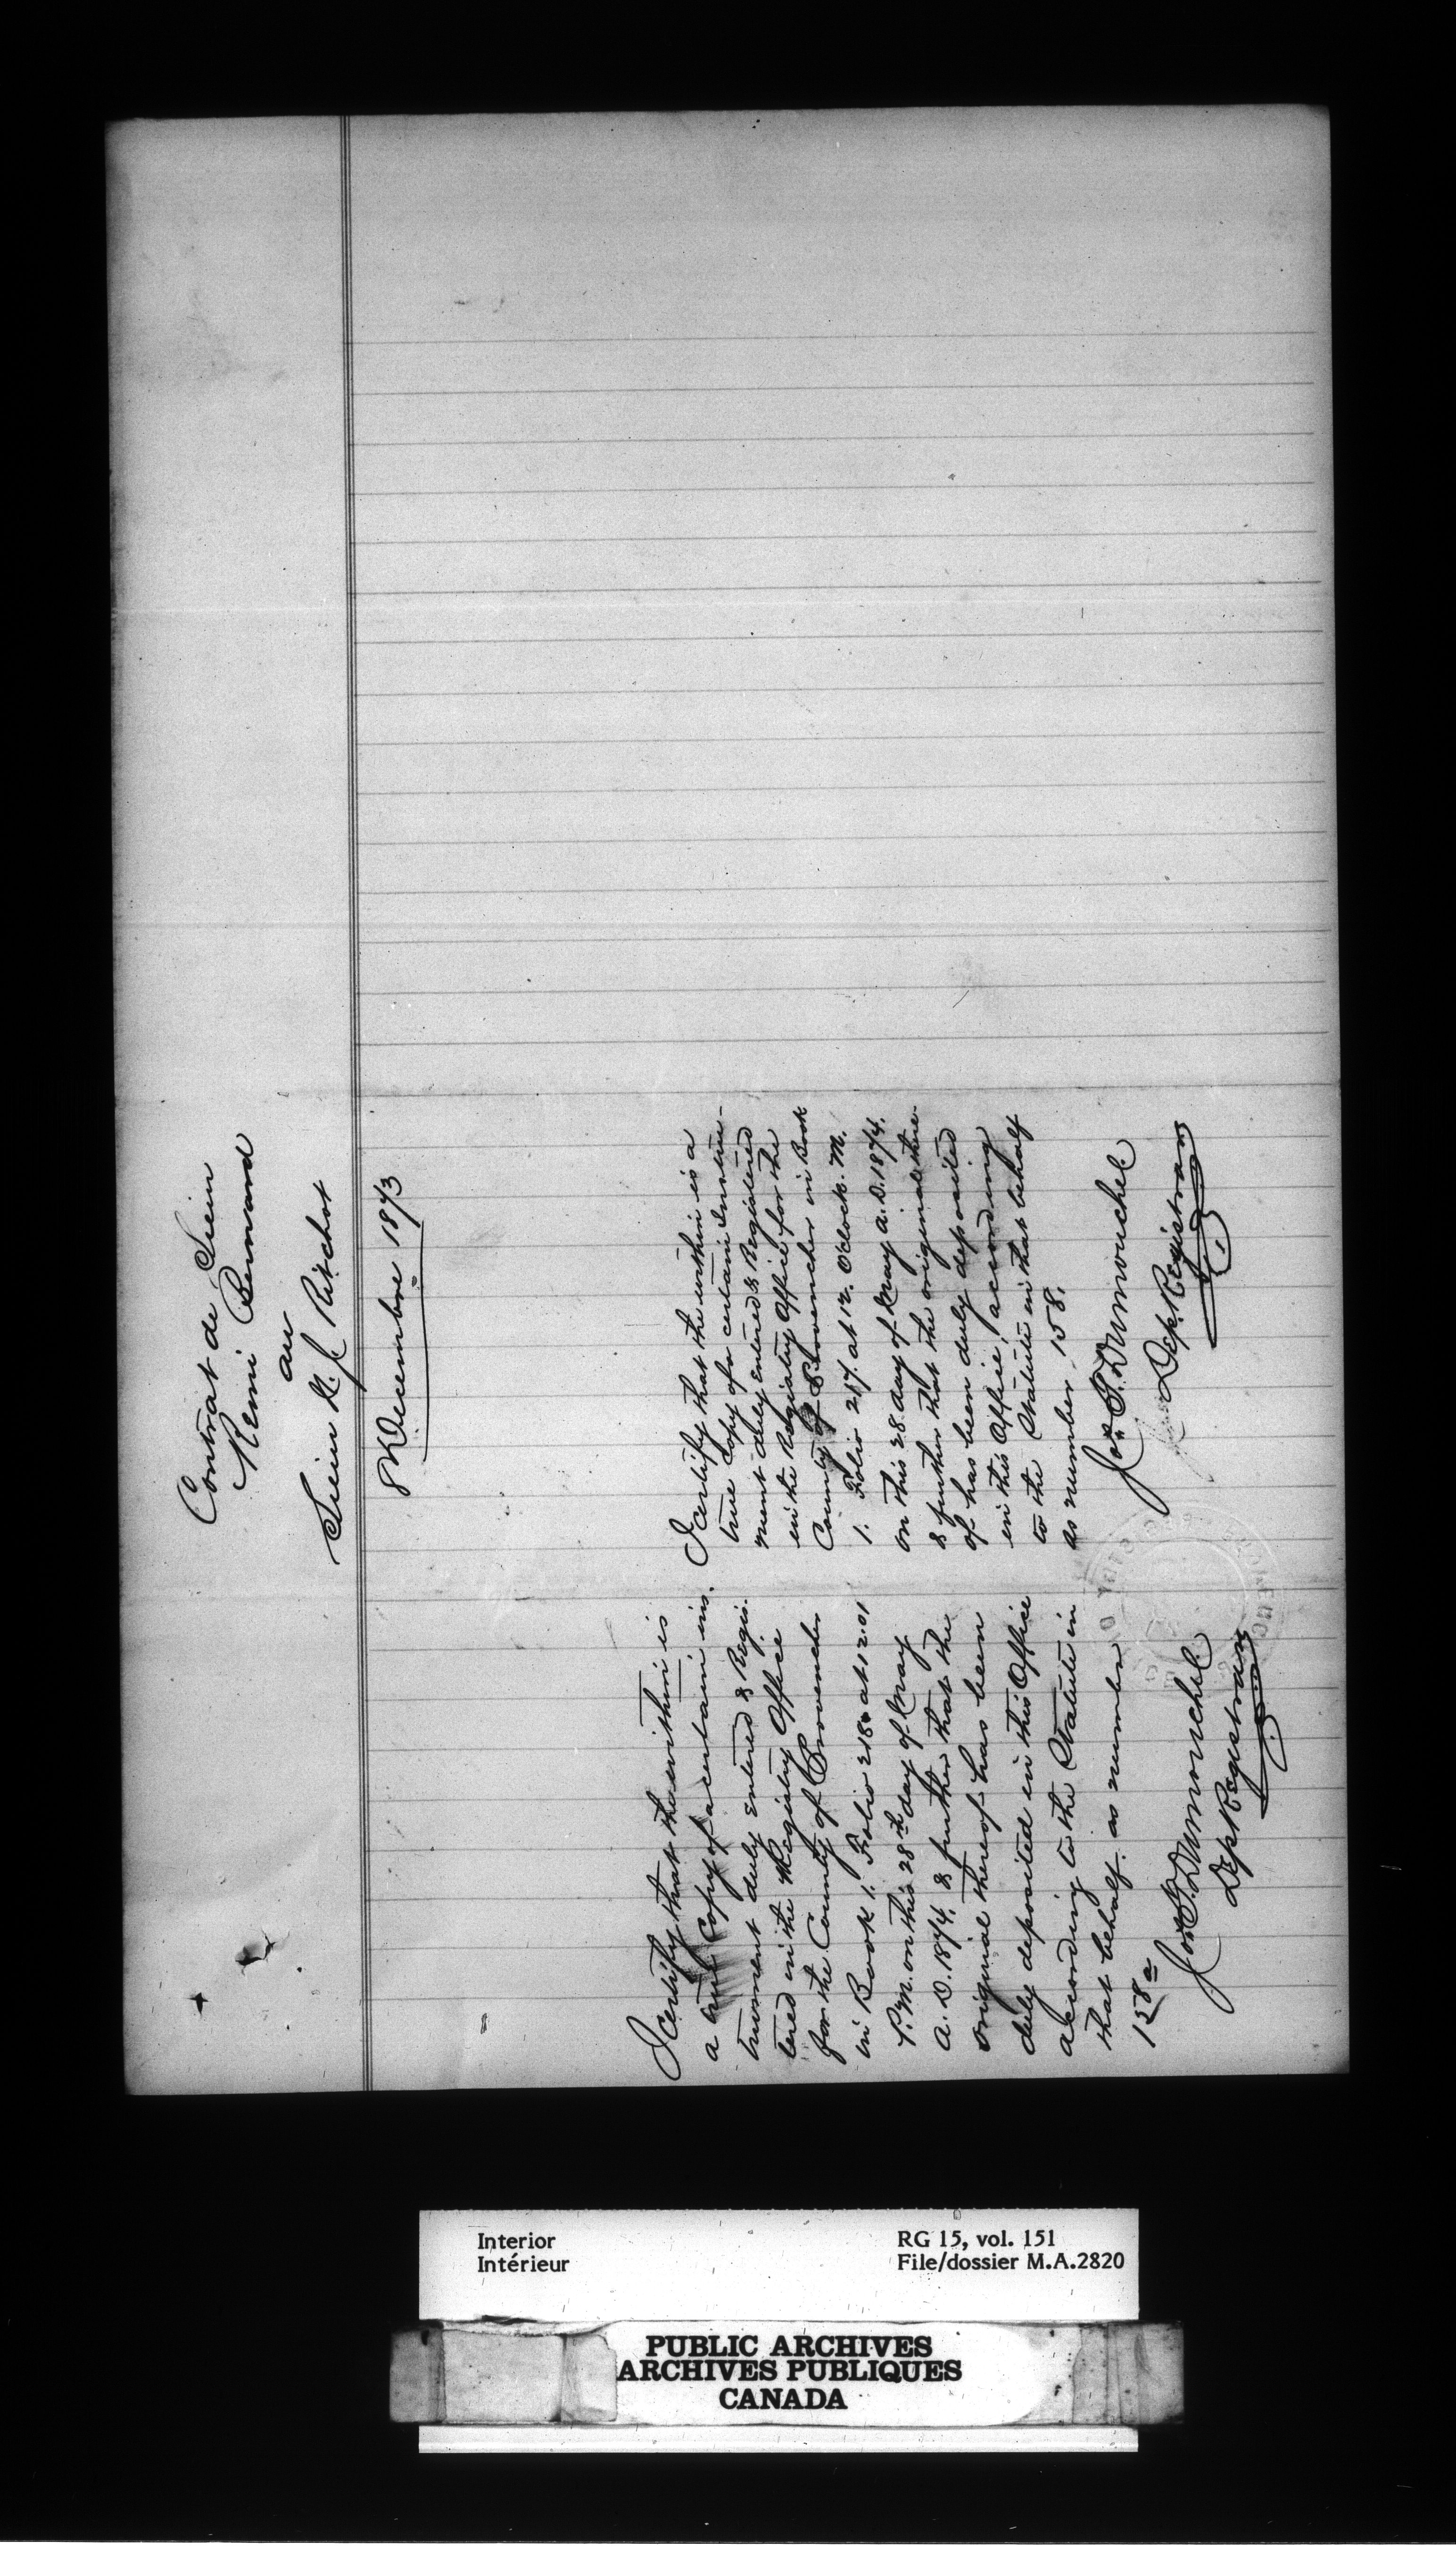 Contrat de Sieur
Remi Bernard
au
Sieur N. J. Ritchot
8 Decembre 1873
I certify that the within is
a true copy of a certain ins-
trument duly entered & Regis-
tered in the Registry Office
for the County of Provencher
in Book 1. Folio 218 at 12.01
P.M. on this 28th day of May
A.D. 1874. & further that the
original thereof has been
duly deposited in this Office
according to the Statute in
that behalf. as number
158a
Jos. T. Dumouchel
Dep Registrar
I certify that the within is a
true copy of a certain instru-
ment duly entered & Registered
in the Registry Office for the
County of Provencher in Book
1. Folio 217. at 12. O'Clock. M.
on this 28 day of May A.D. 1874.
& further that the original there-
of has been duly deposited
in this Office, according
to the Statute in that behalf
as number 158.
Jos. T. Dumouchel
Dep. Registrar
Interior
Intérieur
RG 15, vol. 151
File/dossier M.A.2820
PUBLIC ARCHIVES
ARCHIVES PUBLIQUES
CANADA